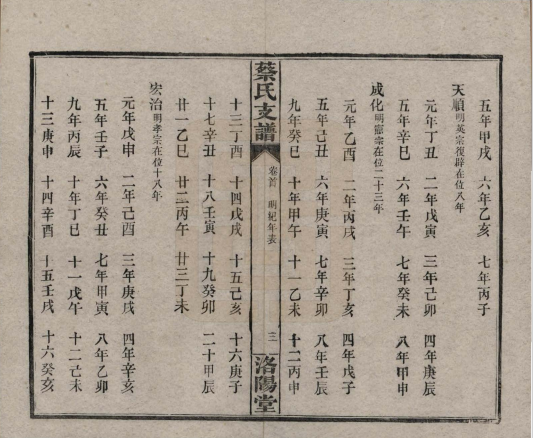 五年甲戌 六年乙亥 七年丙子
天順明英宗復辟在位八年
元年丁丑 二年戊寅 三年己卯 四年庚辰
五年辛巳 六年壬午 七年癸未 八年甲申
成化明憲宗在位二十三年
元年乙酉 二年丙戌 三年丁亥 四年戊子
五年己丑 六年庚寅 七年辛卯 八年壬辰
九年癸巳 十年甲午 十一乙未 十二丙申
蔡氏支譜 卷首 明紀年表 三 洛陽堂
十三丁酉 十四戊戌 十五己亥 十六庚子
十七辛丑 十八壬寅 十九癸卯 二十甲辰
廿一乙巳 廿二丙午 廿三丁未
宏治明孝宗在位十八年
元年戊申 二年己酉 三年庚戌 四年辛亥
五年壬子 六年癸丑 七年甲寅 八年乙卯
九年丙辰 十年丁巳 十一戊午 十二己未
十三庚申 十四辛酉 十五壬戌 十六癸亥